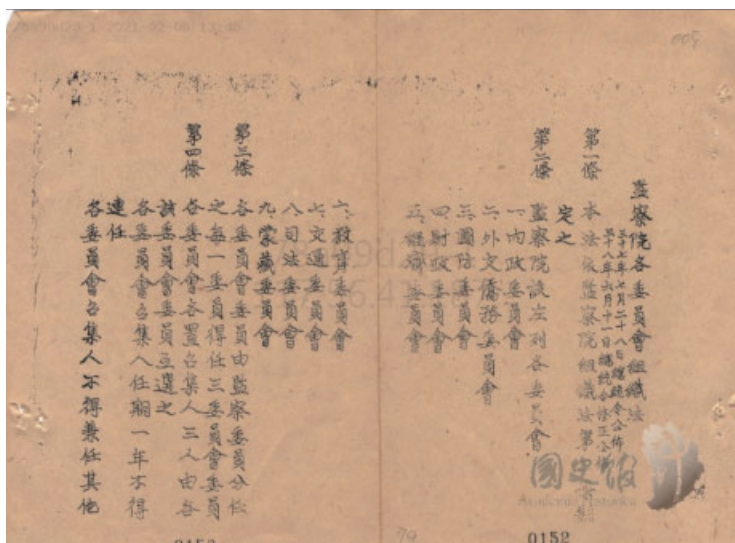 監察院各委員會組織法
三十七年七月二十八日總統令公佈
三十八年六月十一日總統令修正公佈
第一條 本法依監察院組織法第
定之
第二條 監察院設左列各委員會
一、內政委員會
二、外交僑務委員會
三、國防委員會
四、財政委員會
五、經濟委員會
六、教育委員會
七、交通委員會
八、司法委員會
九、蒙藏委員會
第三條 各委員會委員由監察委員分任
之每一委員得任三委員會委員
第四條 各委員會各置召集人三人由各
該委員會委員互選之
各委員會召集人任期一年不得
連任
各委員會召集人不得兼任其他
國史館
Academia Historica
005
79
0152
0153